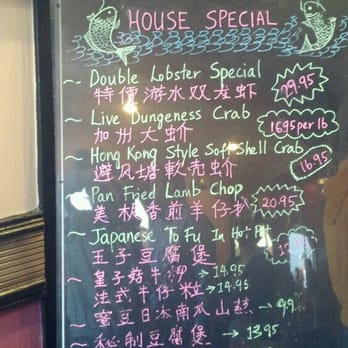 HOUSE SPECIAL
~ Double Lobster Special
特價游水双龙虾 29.95
~ Live Dungeness Crab
加州大蚧 1695 per lb
~ Hong Kong Style Soft Shell Crab
避风塘軟壳蚧 16.95
~ Pan Fried Lamb Chop
美极香煎羊仔扒 20.95
~ Japanese To Fu In Hot Pot
玉子豆腐煲
~ 皇子菇牛 → 14.95
法式牛仔粒 → 14.95
~ 蜜豆日本南瓜山 → 9.9
~ 秘制豆腐煲 → 13.95